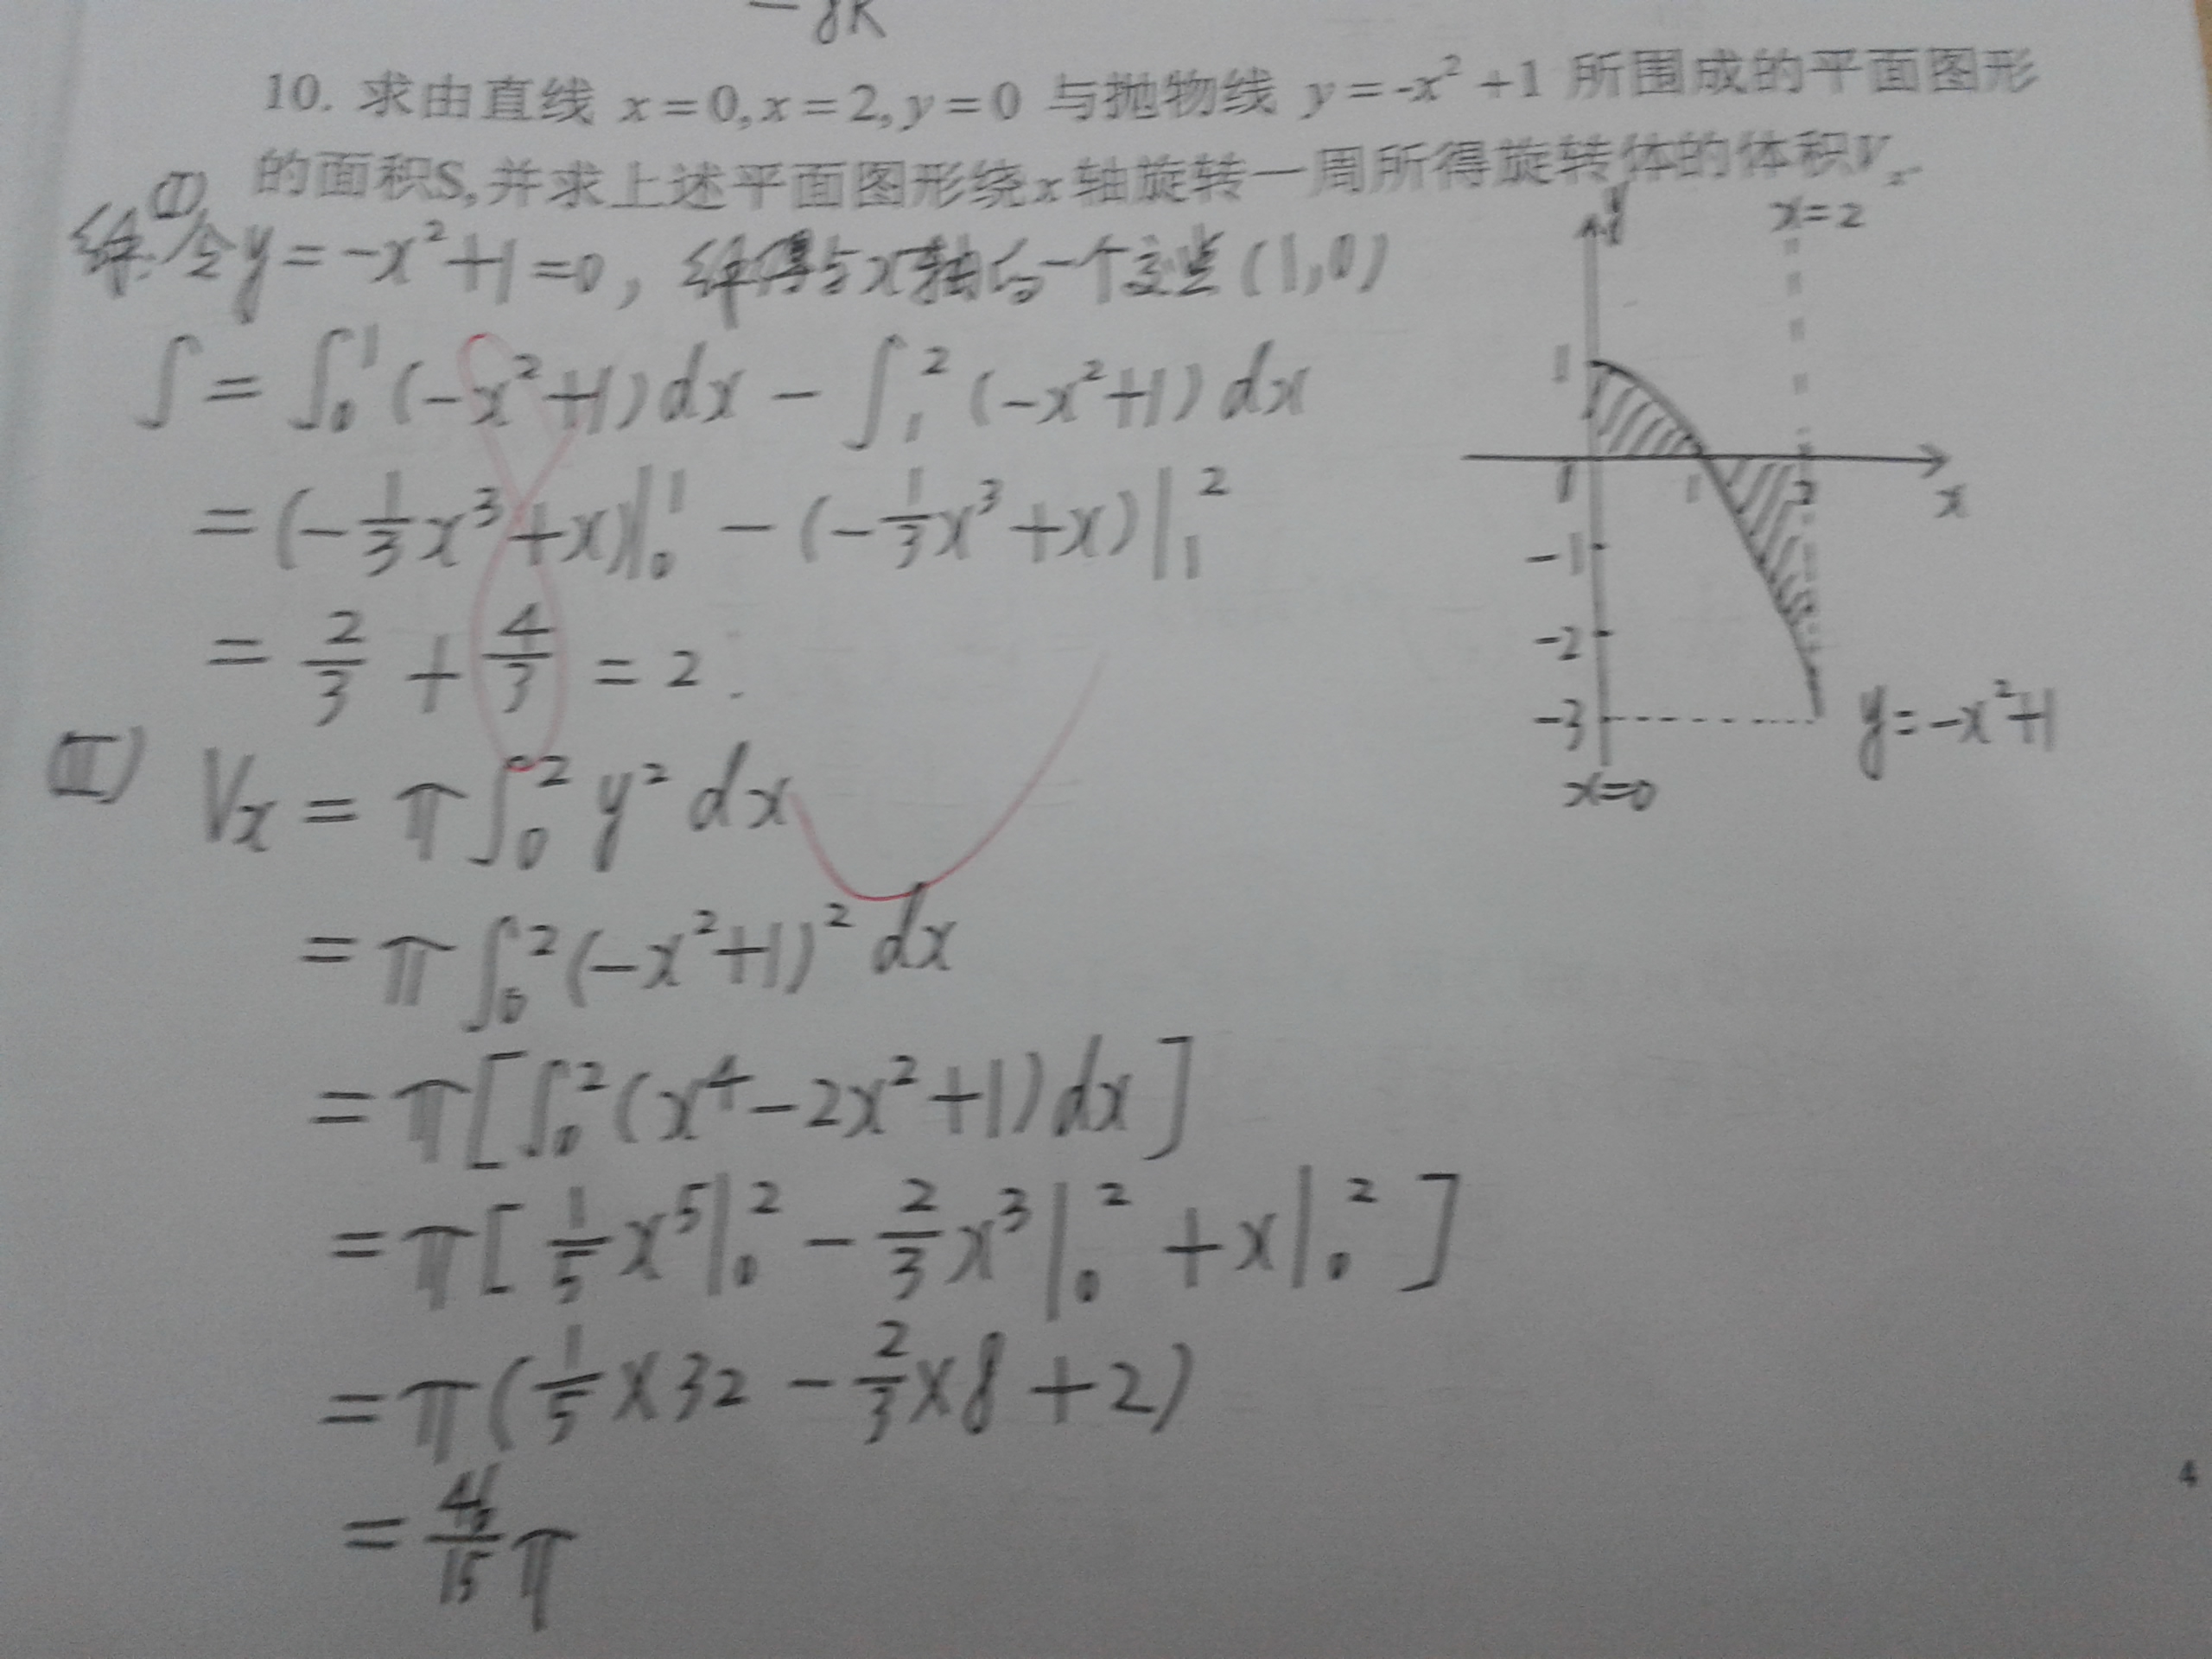 -8k
10. 求由直线 x=0,x=2,y=0 与抛物线 y=-x²+1 所围成的平面图形
的面积S,并求上述平面图形绕x轴旋转一周所得旋转体的体积Vₓ.
(I)
解:令y=-x²+1=0, 解得与x轴的一个交点(1,0)
S=∫₀¹(-x²+1)dx-∫₁²(-x²+1)dx
=(-1/3x³+x)|₀¹-(-1/3x³+x)|₁²
=2/3+4/3=2.
(II) Vₓ=π∫₀²y²dx
=π∫₀²(-x²+1)²dx
=π[∫₀²(x⁴-2x²+1)dx]
=π[1/5x⁵|₀²-2/3x³|₀²+x|₀²]
=π(1/5×32-2/3×8+2)
=46/15π
y
x=2
1
1
1
2
x
-1
-2
-3
y=-x²+1
x=0
4